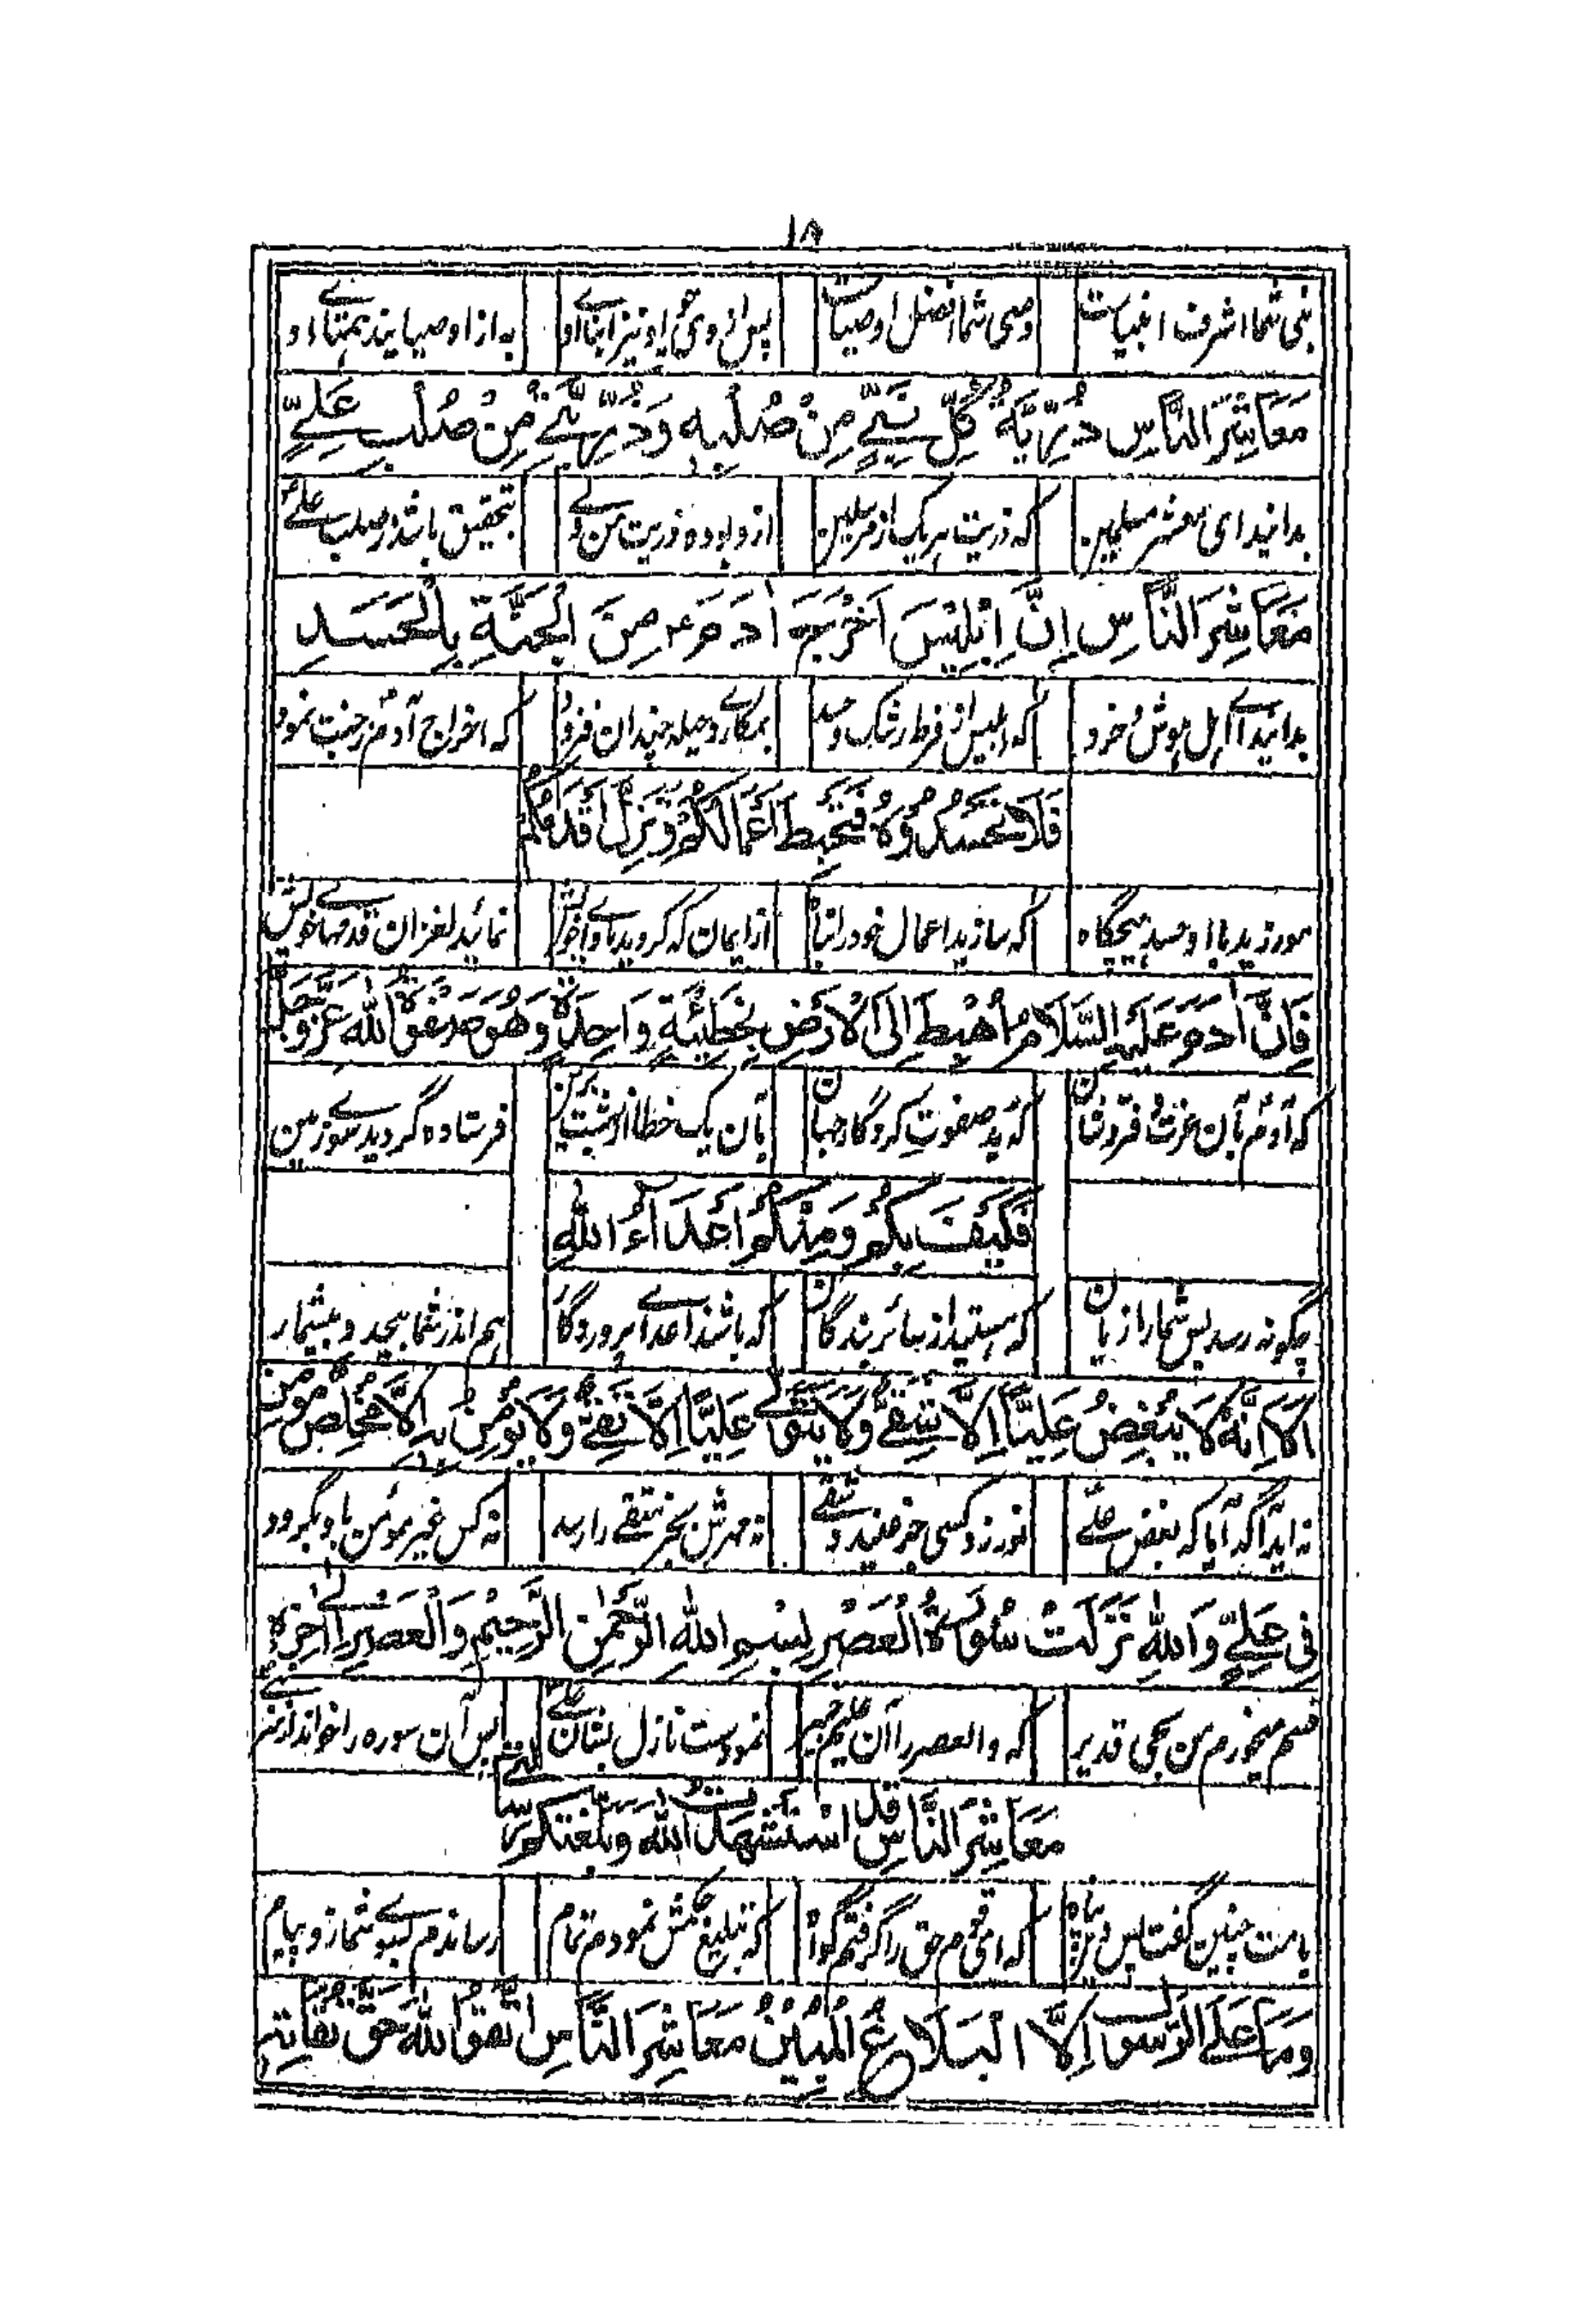 ۱۸
نبی شما اشرف انبیاست وصی شما افضل اوصیاست پس از وی چو او نیز ابنای او به از اوصیایند همتای او
مَعَاشِرَ النَّاسِ ذُرِّيَّةُ كُلِّ نَبِيٍّ مِنْ صُلْبِهِ وَذُرِّيَّتِيْ مِنْ صُلْبِ عَلِيٍّ
بدانید ای معشر مسلمین که ذریت هر یک از مرسلین از و بوده ذریت من ولی بتحقیق باشد ز صلب علی
مَعَاشِرَ النَّاسِ اِنَّ اِبْلِيْسَ اَخْرَجَ اٰدَمَ ع مِنَ الْجَنَّةِ بِالْحَسَدِ
بدانید ای اهل هوش و خرد که ابلیس از فرط رشک و حسد بمکاری و حیله چندان فزود که اخراج آدم ز جنت نمود
فَلَا تَحْسُدُوْهُ فَتَحْبَطَ اَعْمَالُكُمْ وَتَزِلَّ اَقْدَامُكُمْ
مورزید با او حسد هیچگاه که سازید اعمال خود را تباه از ایمان که گروید نمائید لغزان قدمهای خویش
فَاِنَّ اٰدَمَ عَلَيْهِ السَّلَامُ اُهْبِطَ اِلَى الْاَرْضِ بِخَطِيْئَةٍ وَاحِدَةٍ وَهُوَ صَفْوَةُ اللهِ عَزَّوَجَلَّ
که آدم بآن عزت و فر و شان که بد صفوت کردگار جهان بآن یک خطا از بهشت برین فرستاده گردید سوی زمین
فَكَيْفَ بِكُمْ وَمِنْكُمْ اَعْدَآءُ اللهِ
چگونه رسد پس شما را زیان که هستید از سائر بندگان که باشند اعدای پروردگار هم اندر شما بیحد و بیشمار
اَلَا اِنَّهُ لَا يُبْغِضُ عَلِيًّا اِلَّا شَقِيٌّ وَلَا يَتَوَالٰى عَلِيًّا اِلَّا تَقِيٌّ وَلَا يُؤْمِنُ بِهِ اِلَّا مُخْلِصٌ مُؤْمِنٌ
نه اید آگه آیا که بغض علی نورزد کسی جز عنید و شقی نه مهرش بجز متقی را رسد نه کس غیر مؤمن باو بگرود
فِي عَلِيٍّ وَاللهِ نَزَلَتْ سُوْرَةُ الْعَصْرِ بِسْمِ اللهِ الرَّحْمٰنِ الرَّحِيْمِ وَالْعَصْرِ اِلٰى اٰخِرِهِ
قسم میخورم من بحی قدیر که والعصر را آن علیم خبیر نمودست نازل بشان علی پس آن سوره را خواند
مَعَاشِرَ النَّاسِ قَدْ اسْتَشْهَدْتُ اللهَ وَبَلَّغْتُكُمْ رِسَالَتِيْ
بامت چنین گفت پس که ای قوم حق را گرفتم گواه که تبلیغ حکمش نمودم تمام رساندم بسوی شما زو پیام
وَمَا عَلَى الرَّسُوْلِ اِلَّا الْبَلَاغُ الْمُبِيْنُ مَعَاشِرَ النَّاسِ اتَّقُوا اللهَ حَقَّ تُقَاتِهِ